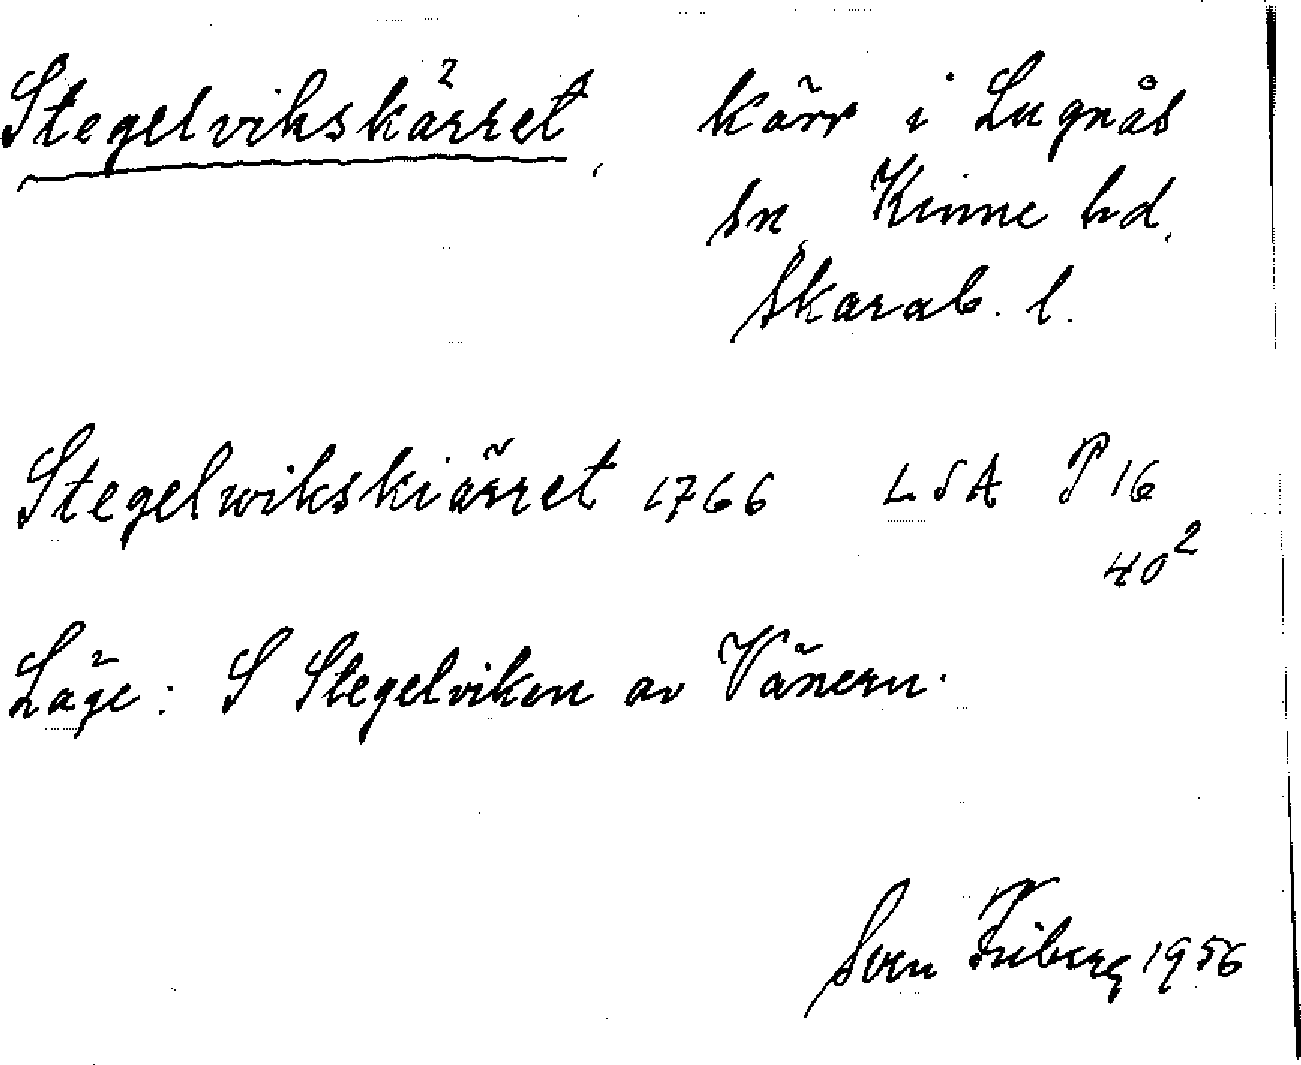 Stegelvikskärret, kärr i Lugnås
sn, Kinne hd.
Skarab. l.
Stegelwikskiärret 1766 LSA P 16
40²
Läge: S Stegelviken av Vänern.
Sven Friberg 1956